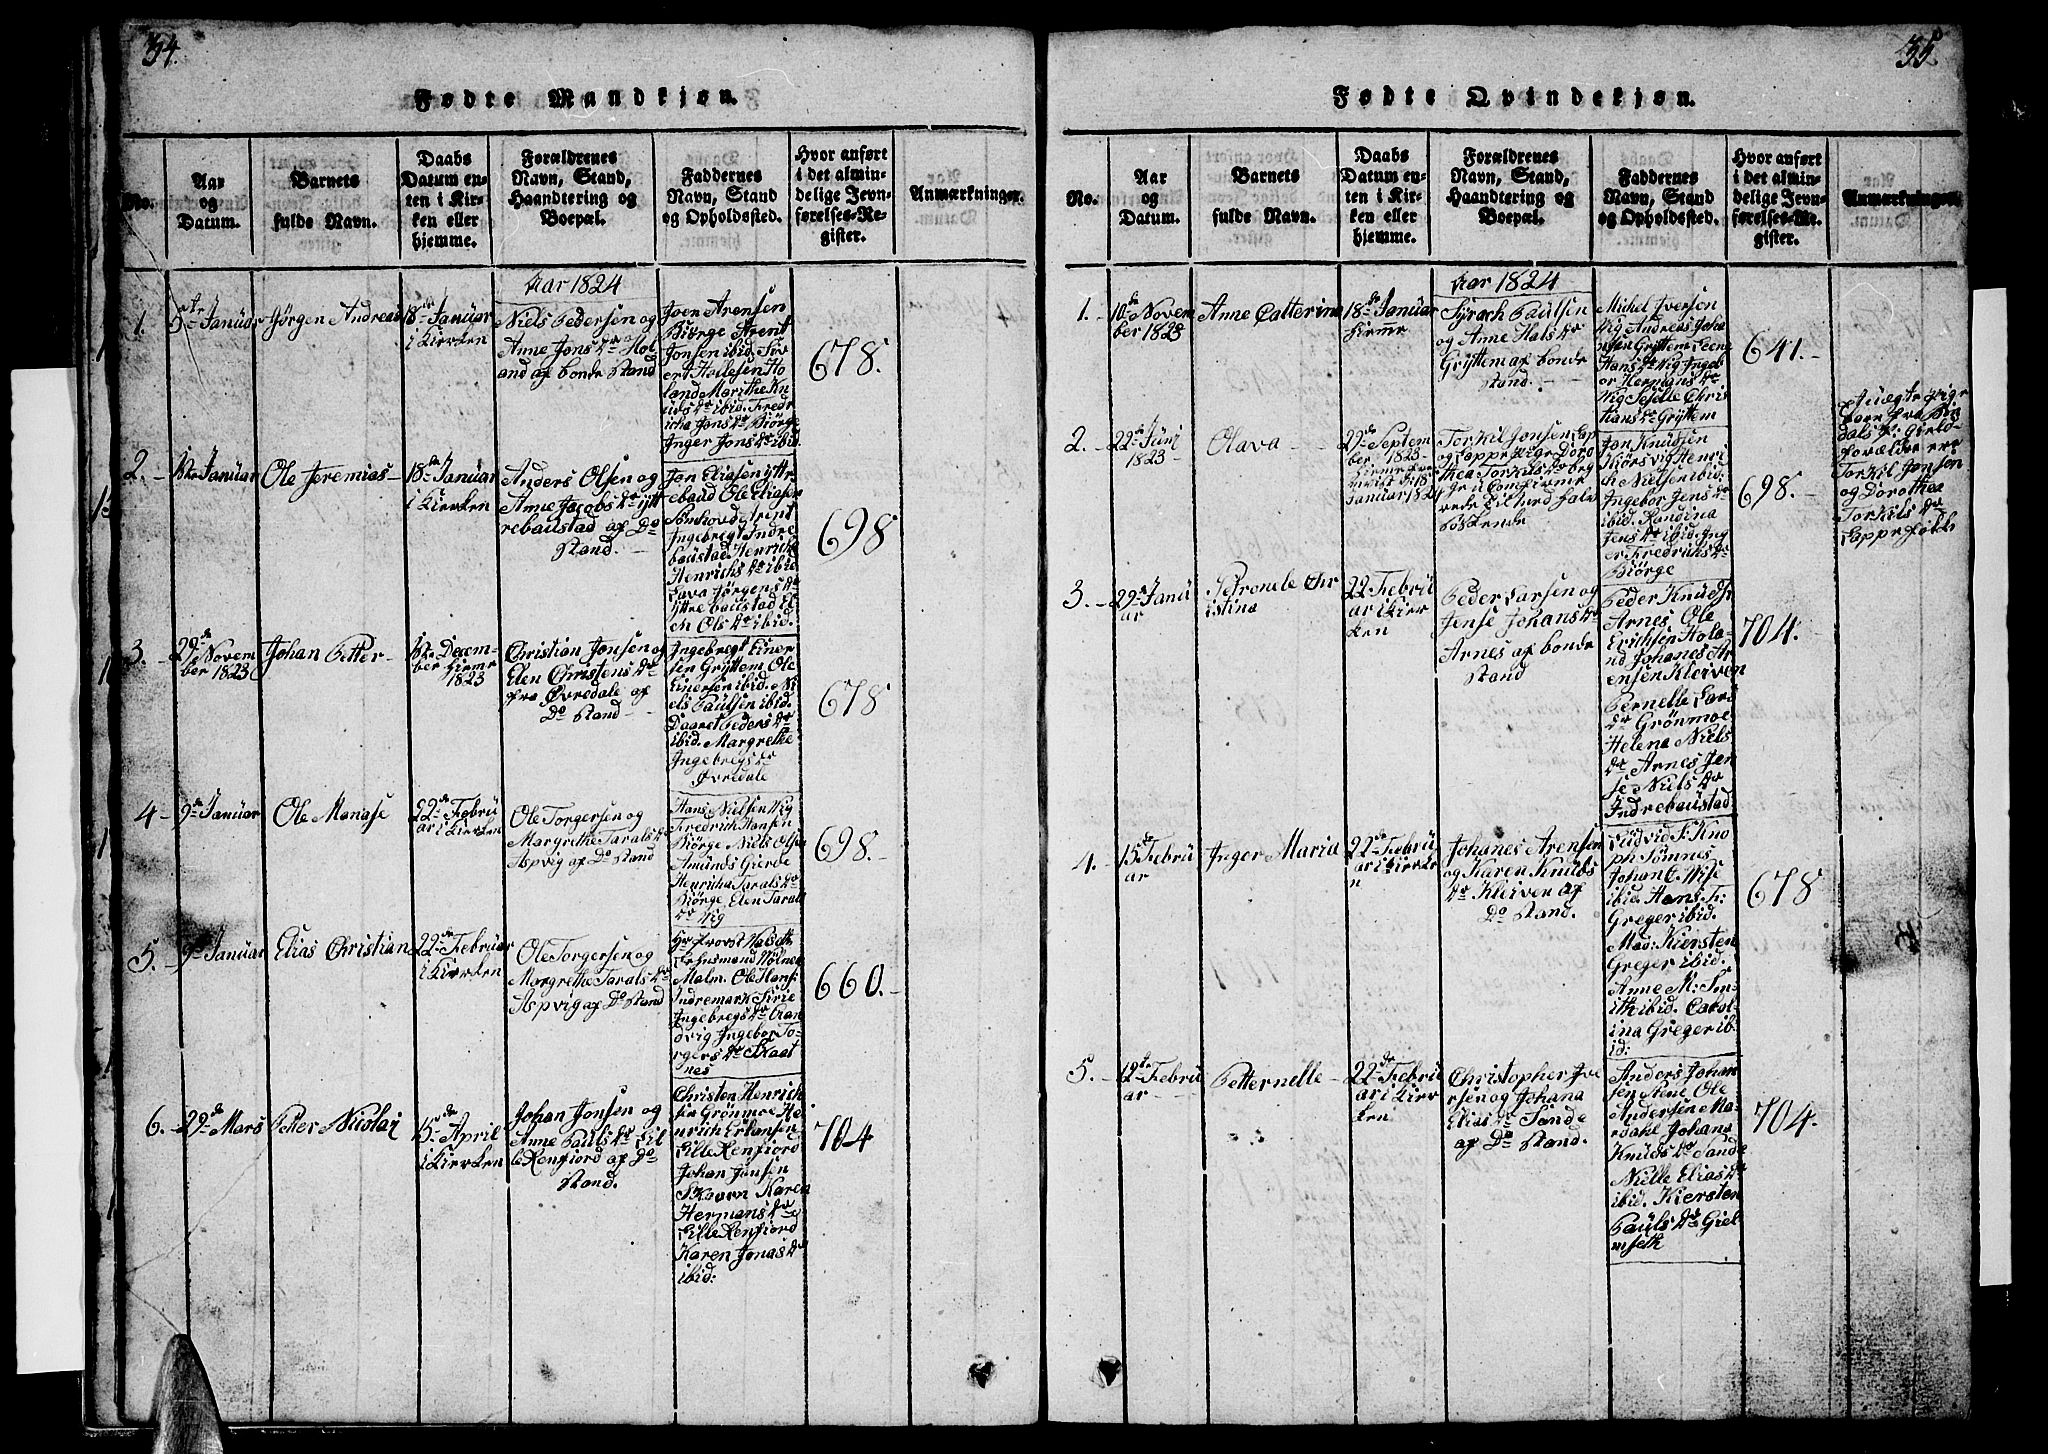 34.
Fødte Mandkjøn.
No.
Aar
og
Datum.
Barnets
fulde Navn.
Daabs
Datum en-
ten i Kir-
ken eller
hjemme.
Forældrenes
Navn, Stand,
Haandtering og
Boepæl.
Faddernes
Navn, Stand
og Opholdsted.
Hvor anført
i det almin-
delige Jevn-
førelses-Re-
gister.
Anmærkninger.
Aar 1824
1.
Januar
Jørgen Andreas
18de Januar
i Kirken
Niels Pedersen og
Anne Jons dr Hol
and af bonde Stand
Joen Arensen
Biørge Arent
Jonsen ibid. Siv
ert Hollesen Ho
land Marithe Kn
uds dr ibid. Fred
richa Jons dr Biørge
Inger Jons dr ibid.
678.
2.
Januar
Ole Jeremias
18de Januar
i Kirken
Anders Olsen og
Anne Jacobs dr ytt
rebaustad af Do
Stand.
Jon Eliasen yttr
ebaust Ole Eliasen
Arent
Ingebregt Indre
baustad. Henricha
Henrichs dr ibid
Lava Jørgens dr
Yttrebaustad El
en Ols dr ibid.
698
3.
29de Novem
ber 1823
Johan Petter
Decem-
ber hjeme
1823
Christian Jonsen og
Elen Christens dr
fra Øvredale af
Do Stand
Ingebregt Einer
sen Gryttem Ole
Einersen ibid. Ni
els Paulsen ibid.
Daaret Peders dr
ibid. Margrethe
Ingebregs dr
Øvredale
678
4
9de Januar
Ole Manase
22de Febru
ar i Kirken
Ole Torgersen og
Margrethe Tarals dr
Aspvig af Do Stand
Hans Nielsen Vig
Fredrich Hansen
Biørge Niels Olsen
Amunds Gierde
Henricha Tarals dr
Biørge. Elen Taral
dr Vig
698.
5.
9de Januar
Elias Christian
22de Februar
i Kirken
Ole Torgersen og
Margrethe Tarals dr
Aspvig af Do Stand
Hr Provst
Lehnsmand
Malm. Ole Hans
Indremark Sirie
Ingebregs dr
vig Ingebor To-
rgers dr Skaat
nes
660.
6.
29de Mars
Petter Nicolai
15de April
i Kirken
Johan Jonsen og
Anne Pauls dr Lil
leRenfiord af Do
Stand.
Christen Henrich
sen Grønmoe He
nrich Erlansen
LilleRenfiord
Johan Jonsen
Skovrn Karen
Hermans dr
LilleRenfiord
Karen Jonas dr
ibid:
704
35.
Fødte Qvindekjøn.
No.
Aar
og
Datum.
Barnets
fulde Navn.
Daabs
Datum en-
ten i Kir-
ken eller
hjemme.
Forældrenes
Navn, Stand,
Haandtering og
Boepæl.
Faddernes
Navn, Stand
og Opholdsted.
Hvor anført
i det almin-
delige Jevn-
førelses-Re-
gister.
Anmærkninger.
Aar 1824
1.
10de Novem
ber 1823
Anne Catterina
18de Januar
hjeme
Syrach Paulsen
og Anne Hals dr
Gryttem af bonde
Stand.
Mickel Iversen
Vig Andreas Joha
nsen Gryttem Lene
Hans dr Vig Ingeb
or Hermans dr
Vig Seselle Chris
tians dr Gryttem
641.
2.
22de Juni
1823
Olava
29de Septem
ber 1823
18
Januar 1824
Torkil Jonsen Lap
og Lappe Pige Doro
thea Torkils dr beg
ge u Confirme
rede Halv
Søskende
Jon Knudsen
Kiørsvig Henri
ch Nielsen ibid.
Ingebor Jens dr
ibid. Randina
Jens dr ibid. Ing
er Fredrichs dr
Biørge
698.
Uægte
Torkil Jonsen
og Dorothea
Torkils dr
Lappe Folk
3.
29de Janu
ar
Petronele Chr
istina
22 Febru
ar i Kirk
ken
Peder Larsen og
Jense Johans dr
Arnes af bonde
Stand
Peder Knuds
Arnes Ole
Erichsen Hola-
nd Johanes Ar
ensen Kleiven
Pernelle Lars
dr Grønmoe
Helena Niels
dr Arnes Jen
se Niels dr
Indrebaustad
704.
4.
15de Febru
ar
Inger Maria
22de Febru
ar i Kirke
n
Johanes Arensen
og Karen Knuds
dr Kleiven af
Do Stand.
Ludvid S: Kno
ph Tømnes
Johan C. Wise
ibid. Hans F:
Greger ibid.
Mad: Kiersten
Greger ibid.
Anne M: Sm-
ith ibid. Carol-
ina Greger ib-
id:
678
5.
12te Febru
ar
Petternelle
22de Febru
ar i Kirk
ken
Christopher Ive
rsen og Johana
Elias dr Sande
af Do Stand.
Anders Johan
sen Nene Ole
Andersen Ma-
rdahl Johana
Knuds dr Sande
Nielle Elias dr
ibid. Kiersten
Pauls dr Giel
mseth
704.